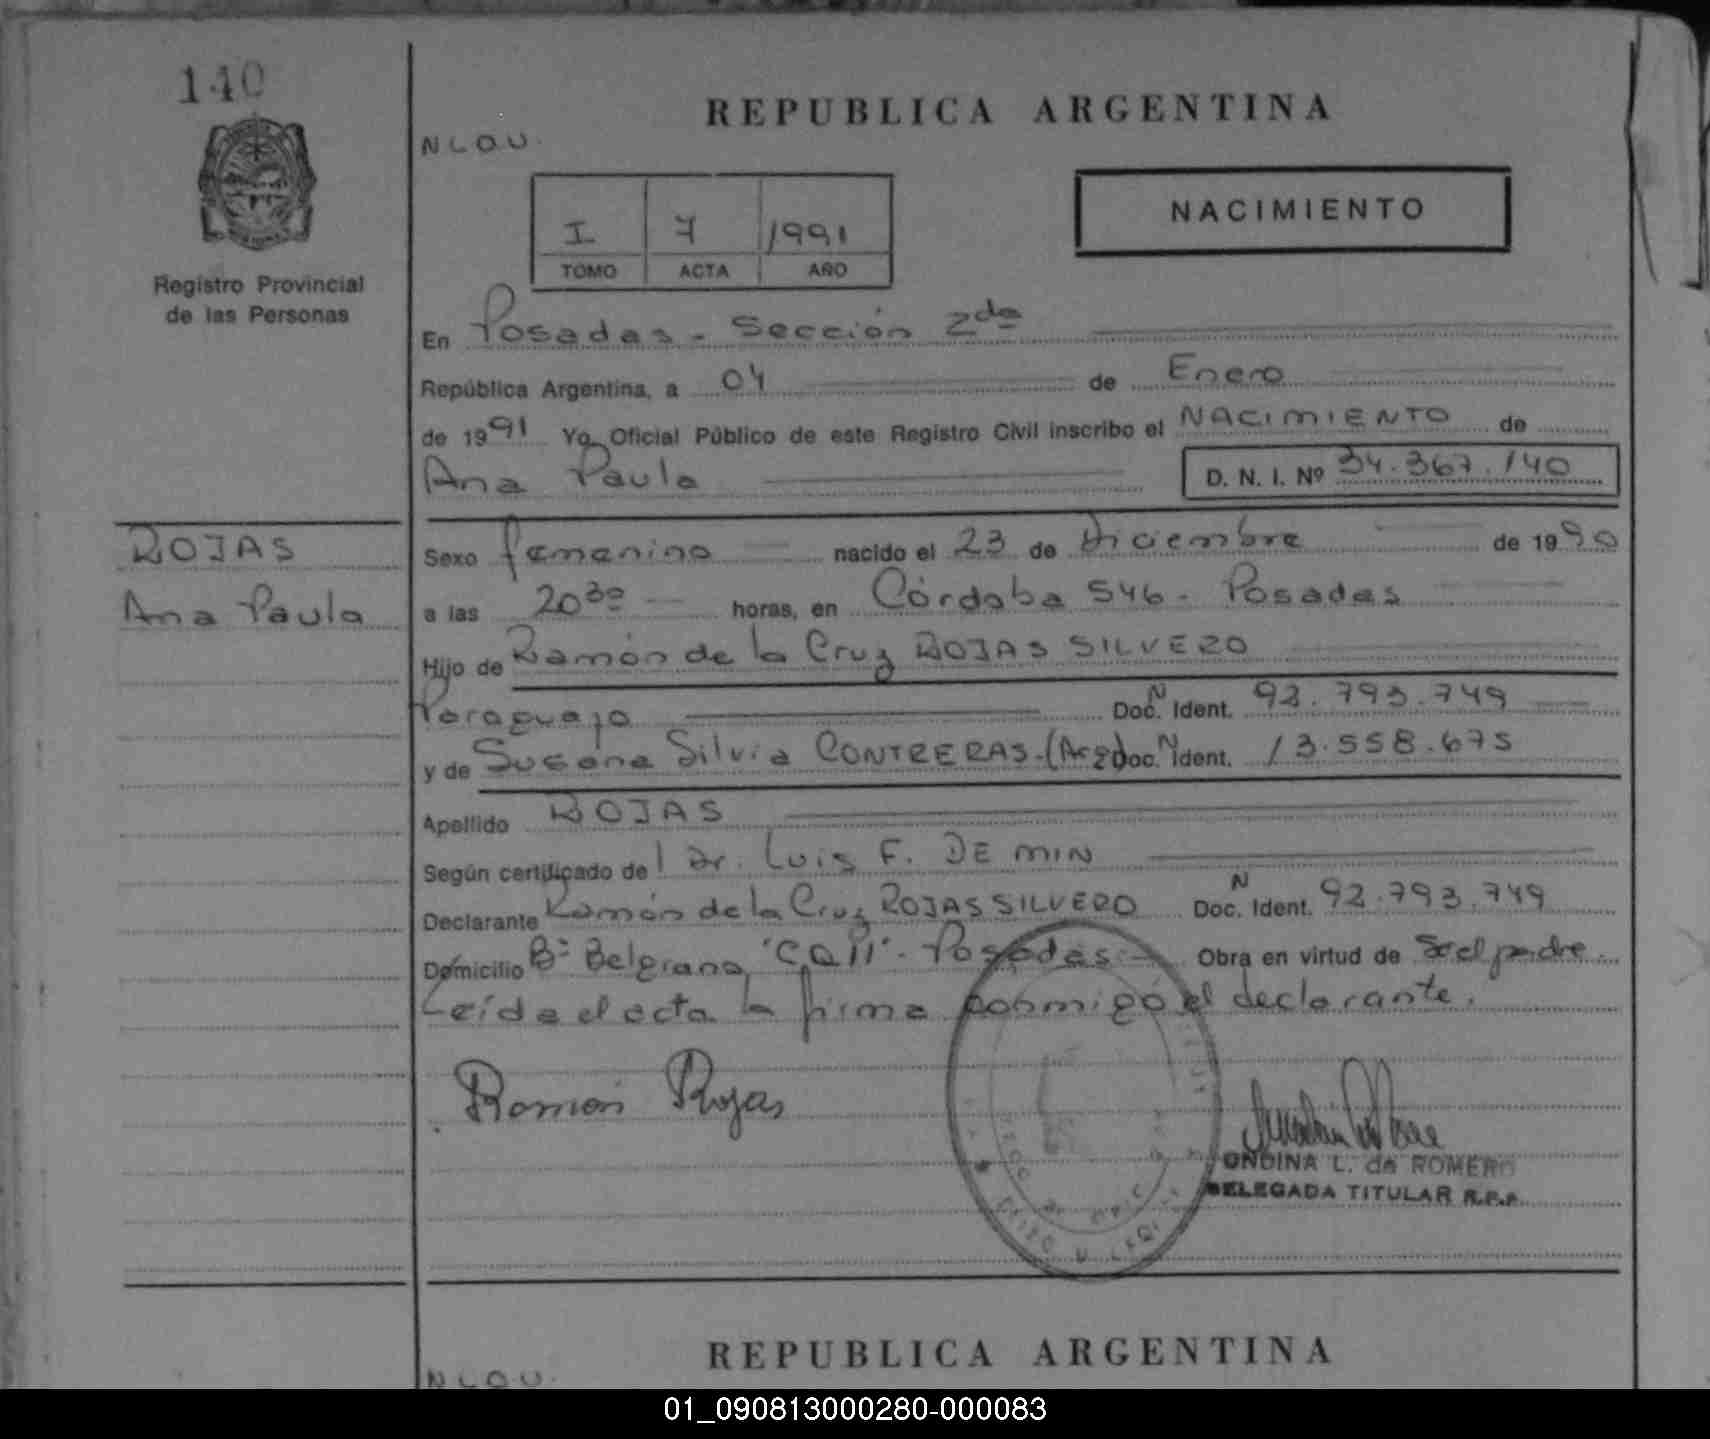 140
REPUBLICA ARGENTINA
N L O U.
NACIMIENTO
I 7 1991
TOMO ACTA AÑO
Registro Provincial
de las Personas
En Posadas - Sección 2da
República Argentina, a 04 de Enero
de 1991 Yo, Oficial Público de este Registro Civil inscribo el NACIMIENTO de
Ana Paula D. N. I. Nº 34.367.140
ROJAS
Ana Paula
Sexo femenino nacido el 23 de Diciembre de 1990
a las 20 30 horas, en Córdoba 546 - Posadas
Hijo de Ramón de la Cruz ROJAS SILVERO
Paraguayo Doc. N Ident. 92.793.749
y de Susana Silvia CONTRERAS-(Arg) Doc. N Ident. 13.558.675
Apellido ROJAS
Según certificado del Dr. Luis F. DE MIN
Declarante Ramón de la Cruz ROJAS SILVERO Doc. N Ident. 92.793.749
Domicilio Bº Belgrano - Posadas - Obra en virtud de Ser el padre.
Leída el acta la firma conmigo el declarante.
Ramón Rojas
ONDINA L. de ROMERO
DELEGADA TITULAR R.P.P.
REPUBLICA ARGENTINA
N L O U.
01_090813000280-000083